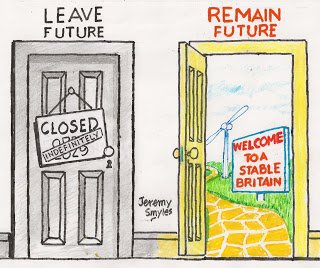 LEAVE
FUTURE
REMAIN
FUTURE
CLOSED
INDEFINITELY
WELCOME
TO A
STABLE
BRITAIN
Jeremy
Smyles